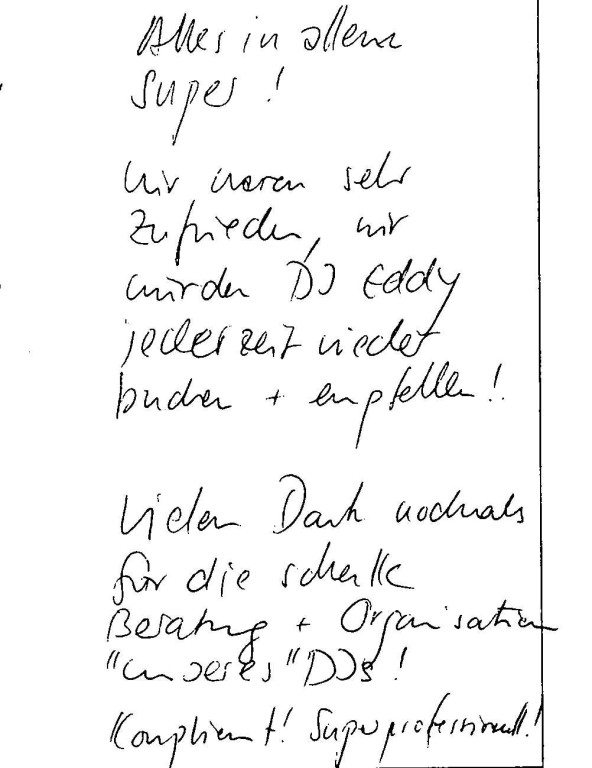 Alles in allem
super!
Wir waren sehr
zufrieden, wir
würden DJ Eddy
jederzeit wieder
buchen + empfehlen!
Vielen Dank nochmals
für die schnelle
Beratung + Organisation
"unseres" DJs!
Kompliment! Superprofessionell!